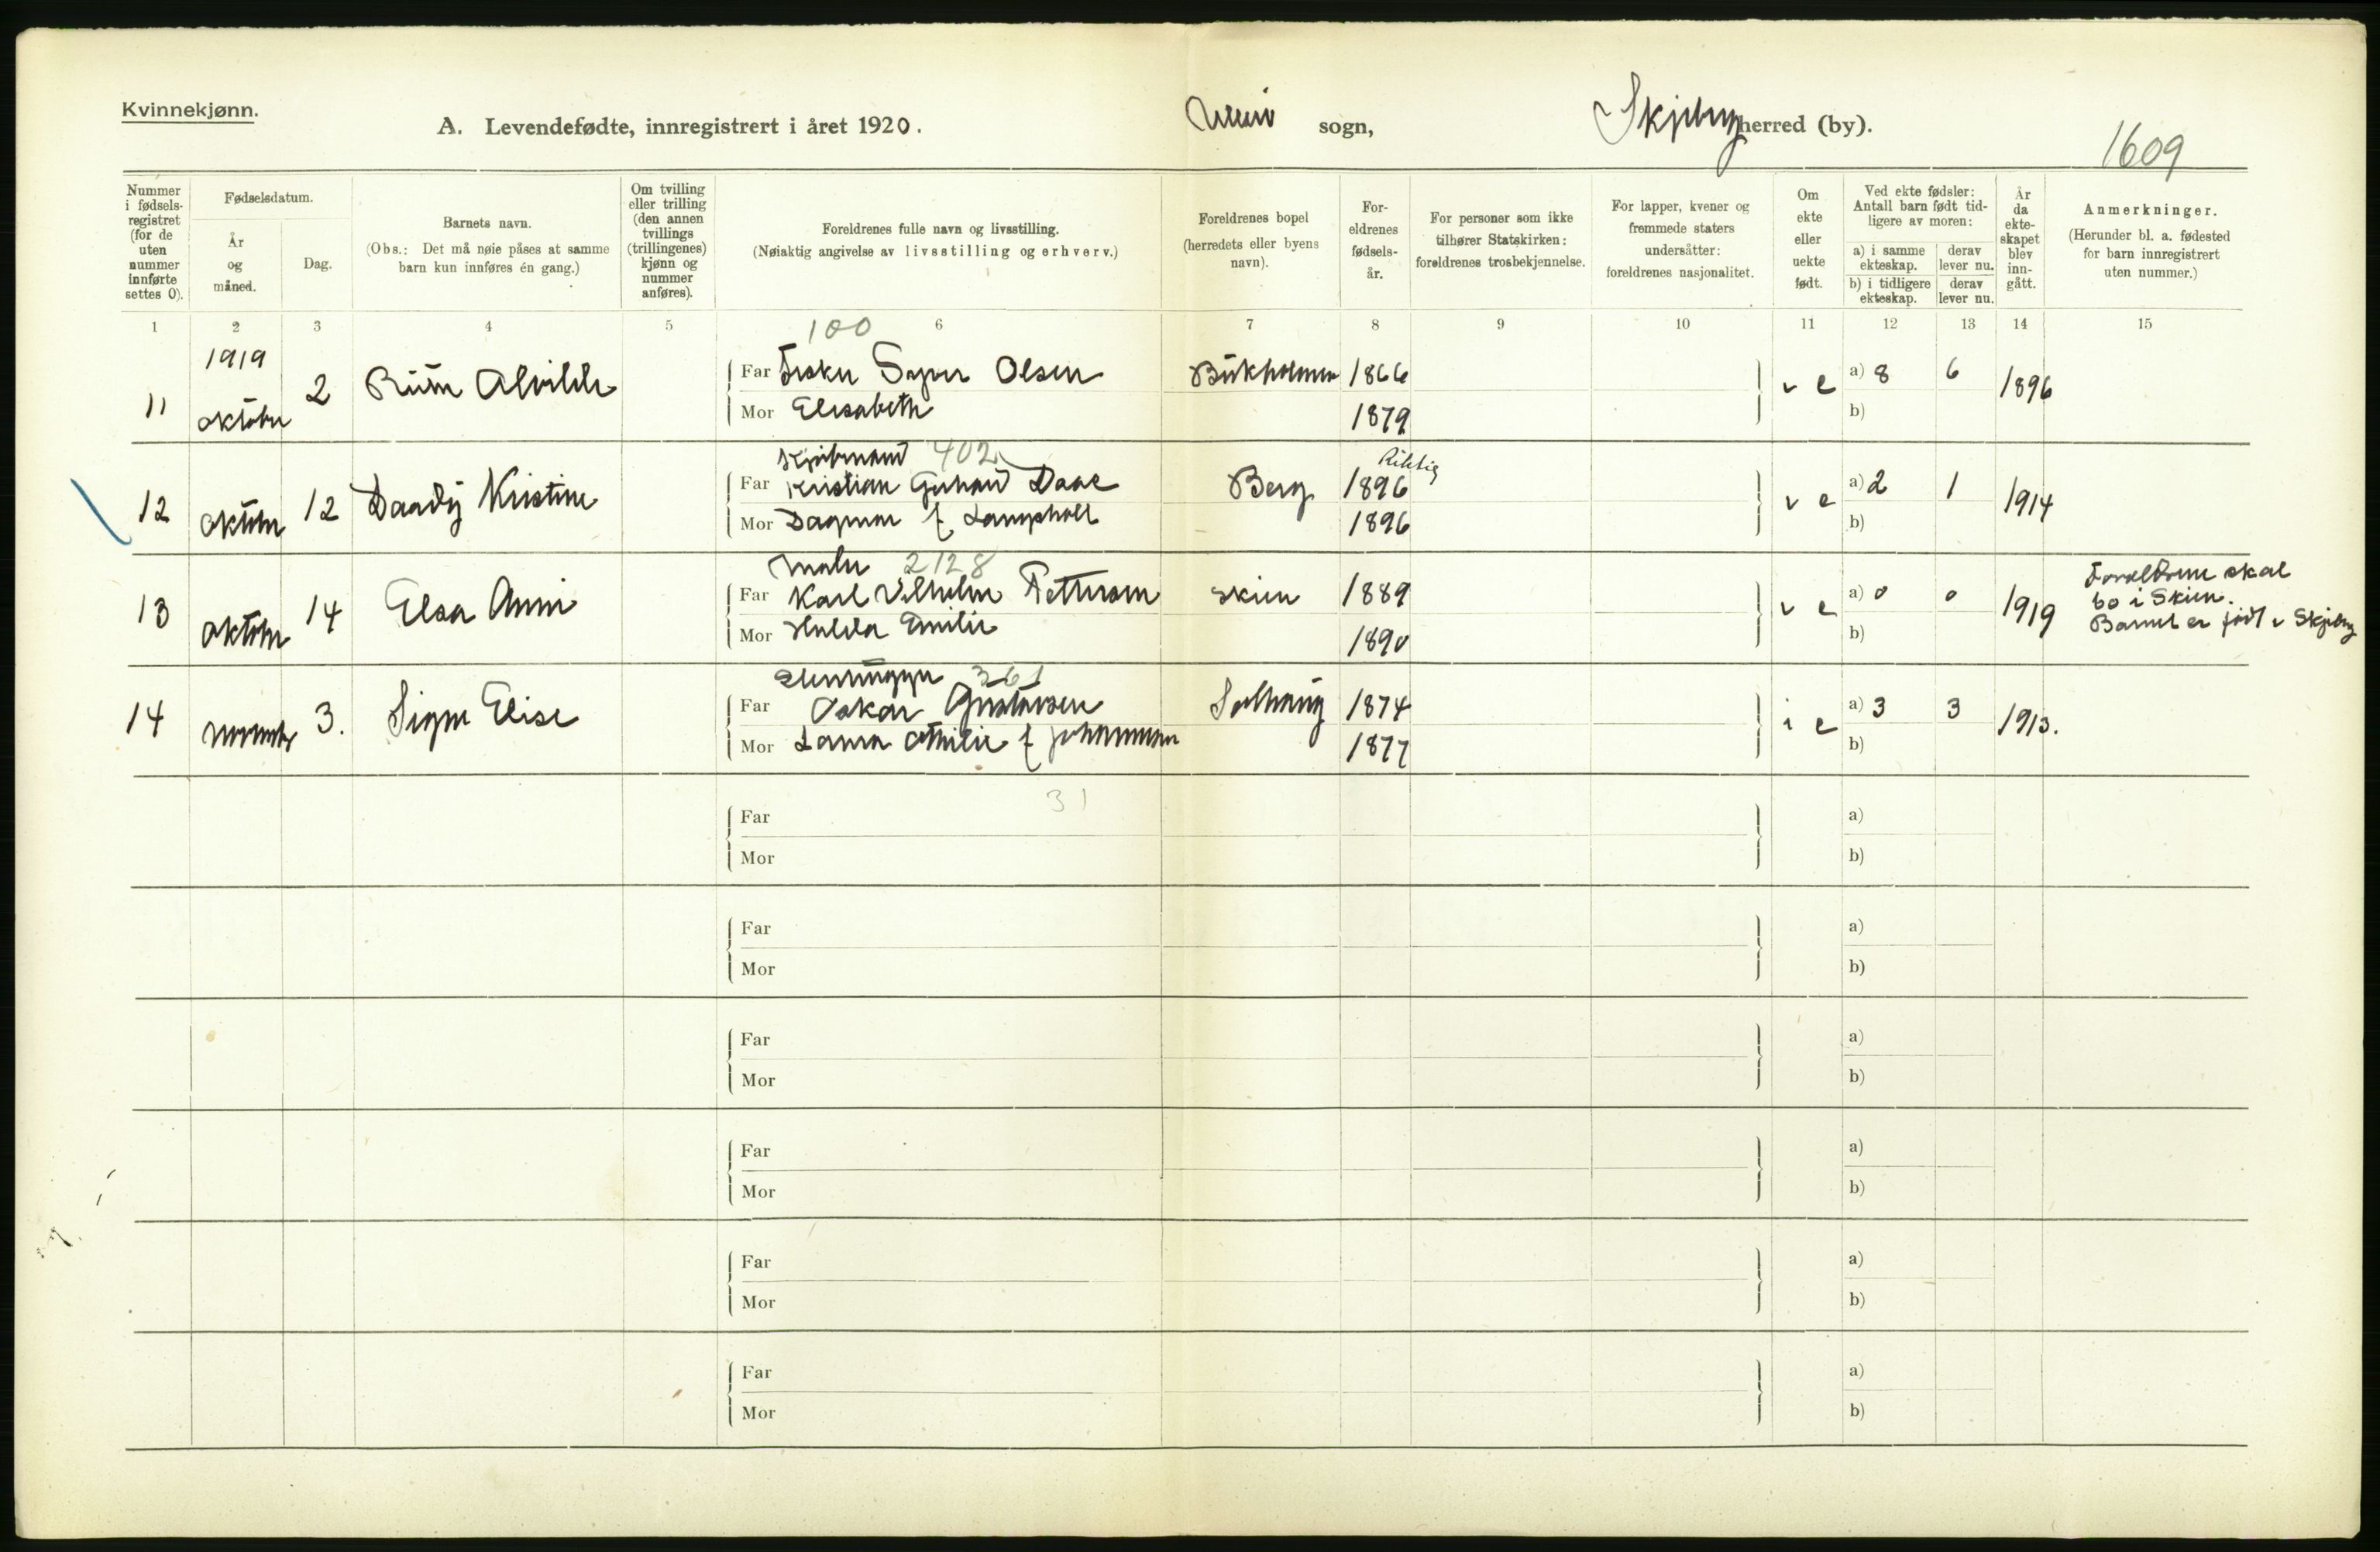 Kvinnekjønn.
A. Levendefødte, innregistrert i året 1920.
Ullerø sogn,
Skjeberg herred (by).
1609
Nummer i fødsels-registret (for de uten nummer innførte settes 0).
Fødselsdatum.
År og måned.
Dag.
Barnets navn.
(Obs.: Det må nøie påses at samme barn kun innføres én gang.)
Om tvilling eller trilling (den annen tvillings (trillingenes) kjønn og nummer anføres).
Foreldrenes fulle navn og livsstilling.
(Nøiaktig angivelse av livsstilling og erhverv.)
Foreldrenes bopel (herredets eller byens navn).
For-eldrenes fødsels-år.
For personer som ikke tilhører Statskirken: foreldrenes trosbekjennelse.
For lapper, kvener og fremmede staters undersåtter: foreldrenes nasjonalitet.
Om ekte eller uekte født.
Ved ekte fødsler: Antall barn født tid-ligere av moren:
a) i samme ekteskap.
derav lever nu.
b) i tidligere ekteskap.
derav lever nu.
År da ekte-skapet blev inn-gått.
Anmerkninger.
(Herunder bl. a. fødested for barn innregistrert uten nummer.)
1 2 3 4 5 6 7 8 9 10 11 12 13 14 15
100
1919
11 oktober 2 Alvilde Far Fisker Olsen 1866 e a) 8 6 1896
Mor Elisabeth 1879 b)
402
Riktig
12 oktober 12 Kristine Far Kristian Gerhard Daae Berg 1896 e a) 2 1 1914
Mor Dagmar f 1896 b)
Maler 2128
13 oktober 14 Elsa Anni Far Karl Vilhelm Pettersen Skien 1889 e a) 0 0 1919 Foreldrene skal
bo i Skien.
Barnet er født i Skjeberg
Mor Hulda Emilie 1890 b)
Stenhugger 361
14 november 3. Signe Elise Far Oskar Gustavsen Solhaug 1874 i e a) 3 3 1913.
Mor Laura Othilie f Johannesen 1877 b)
31
Far a)
Mor b)
Far a)
Mor b)
Far a)
Mor b)
Far a)
Mor b)
Far a)
Mor b)
Far a)
Mor b)